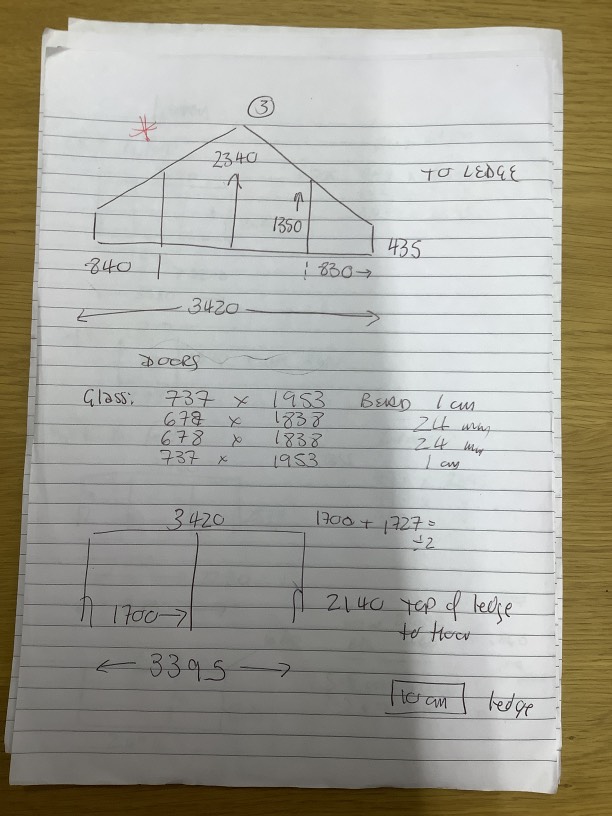 3
2340
TO LEDGE
1350
435
840
830
3420
DOORS
Glass: 737 x 1953 BEAD 1 cm
678 x 1838 24 mm
678 x 1838 24 mm
737 x 1953 1 cm
3420 1700 + 1727 =
÷2
1700 2140 top of ledge
to floor
3395
10 cm ledge